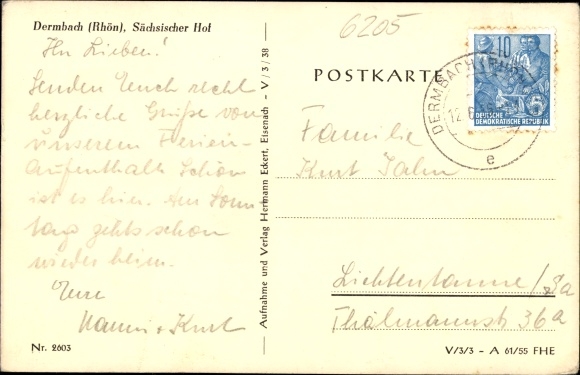 Dermbach (Rhön), Sächsischer Hof
Ihr Lieben!
Senden Euch recht
herzliche Grüße von
unserem Ferien-
Aufenthalt. Schön
ist es hier. Am Sonn
tag gehts schon
wieder heim.
Eure
Hanni + Kurt
Nr. 2603
Aufnahme und Verlag Hermann Eckert, Eisenach – V/3/38 –
6205
POSTKARTE
10
5
DEUTSCHE
DEMOKRATISCHE REPUBLIK
DERMBACH
12.6
e
Familie
Kurt Jahn
Lichtentanne/Sa
Thälmannstr 36a
V/3/3 - A 61/55 FHE